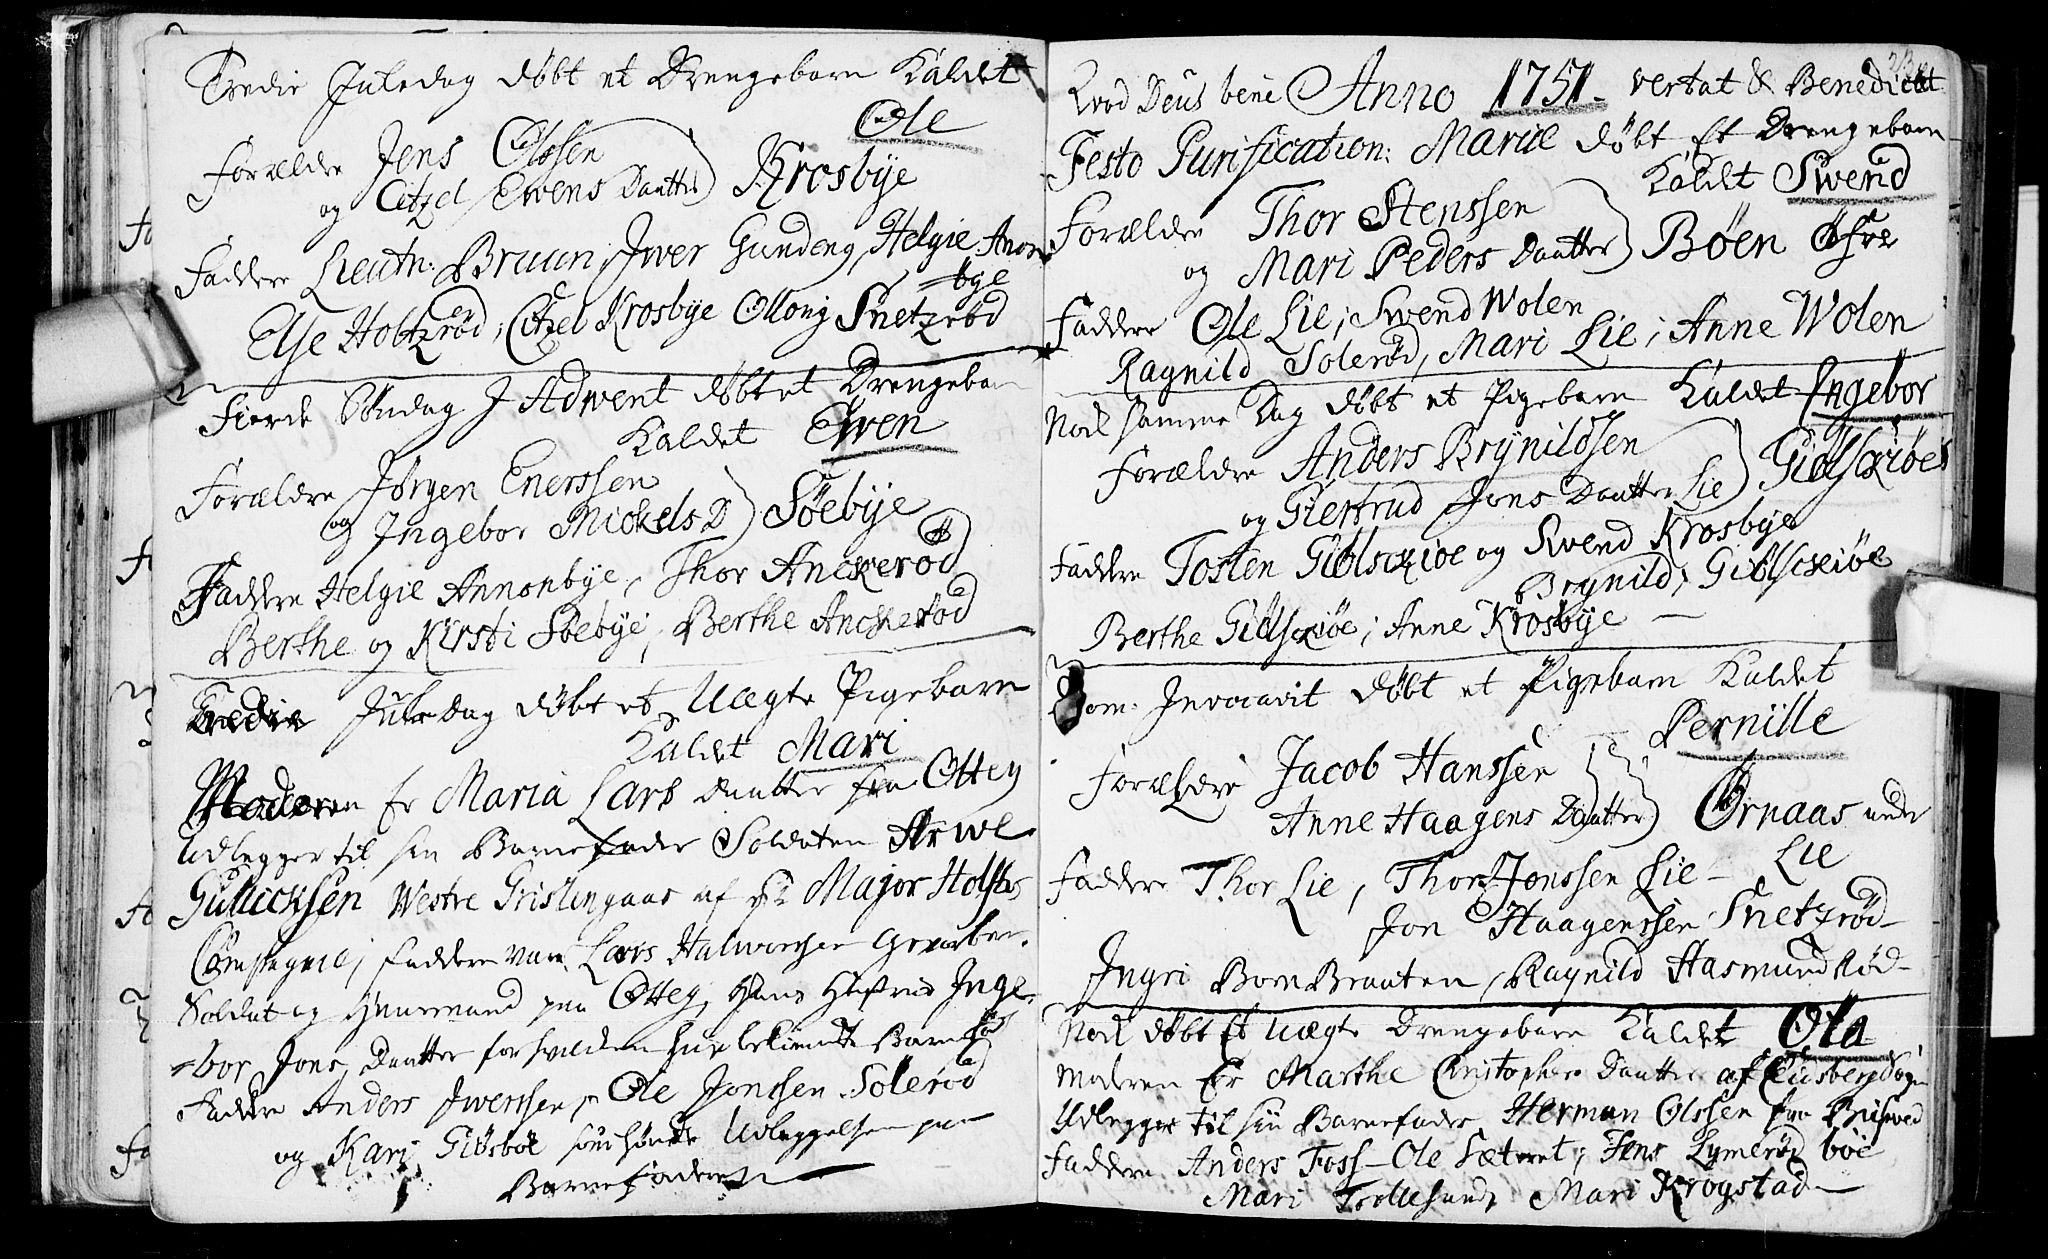 Tredie Juledag døbt et Drengebarn Kaldet
Ole
Forældre Jens Olssen
og Citzel Evens Daatter Krosbye
Faddere Lieutn: Bruun, Iver Gundeng, Helgie Anon
=bye
Else Holtzrød, Citzel Krosbye Ollong Snetzrød
Fierde Søndag J Adwent døbt et Drengebarn
Kaldet Ewen
Forældre Jørgen Enerssen
og Ingebor Mickels D Søebye
Faddere Helgie Annonbye, Thor Anckerød
Berthe og Kirsti Søebye, Berthe Anckerød
Tredie Juledag døbt et Uægte Pigebarn
Kaldet Mari
Moderen Er Maria Lars Daatter fra Ottey
Udlegger til sin Barnefader Soldaten Arwe
Gullicksen Westre Grislingaas af Major Holstes
Compagnie, Faddere var Lars Halworsen
Soldat og Huusmand paa Ottey, Hans Hustrue Inge
=bor Jons Daatter forhvilden hun bekiendte Barnefad
Faddere Anders Iwerssen, Ole Jonssen Solerød
og Kari Giøsboe som hørte Udleggelsen paa
Barnefaderen
23
Qvod Deus bene Anno 1751 vertat & Benedicat
Festo Purification: Mariæ døbt Et Drengebarn
Kaldet Swend
Forældre Thor Stenssen
og Mari Peders Daatter Bøen Øfre
Faddere Ole Lie, Swend Wolen
Ragnild Solerød, Mari Lie, Anne Wolen
Nock samme Dag døbt et Pigebarn Kaldet Ingebor
Forældre Anders Brynildsen
og Giertrud Jens Daatter Lie Gidsckiøe
Faddere Tosten Giølsckiøe og Swend Krosbye
Brynild Giølsckiøe
Berthe Gidsckiøe, Anne Krosbye
Dom: Invocavit døbt et Pigebarn Kaldet
Pernille
Forældre Jacob Hanssen
Anne Haagens Daatter Ørnaas under
Lie
Faddere Thor Lie, Thor Jonssen Lie
Jon Haagenssen Snetzrød
Ingri BornBraaten, Ragnild Hasmundrød
Nock døbt Et Uægte Drengebarn Kaldet Ola
Moderen Er Marthe Christophers Daatter af Eidsberg Sogn
Udlegger til sin Barnefader Herman Olssen fra
Faddere Anders Foss Ole Sæteret, Jens Lymerød bøe
Mari Trollesund, Mari Krogstad